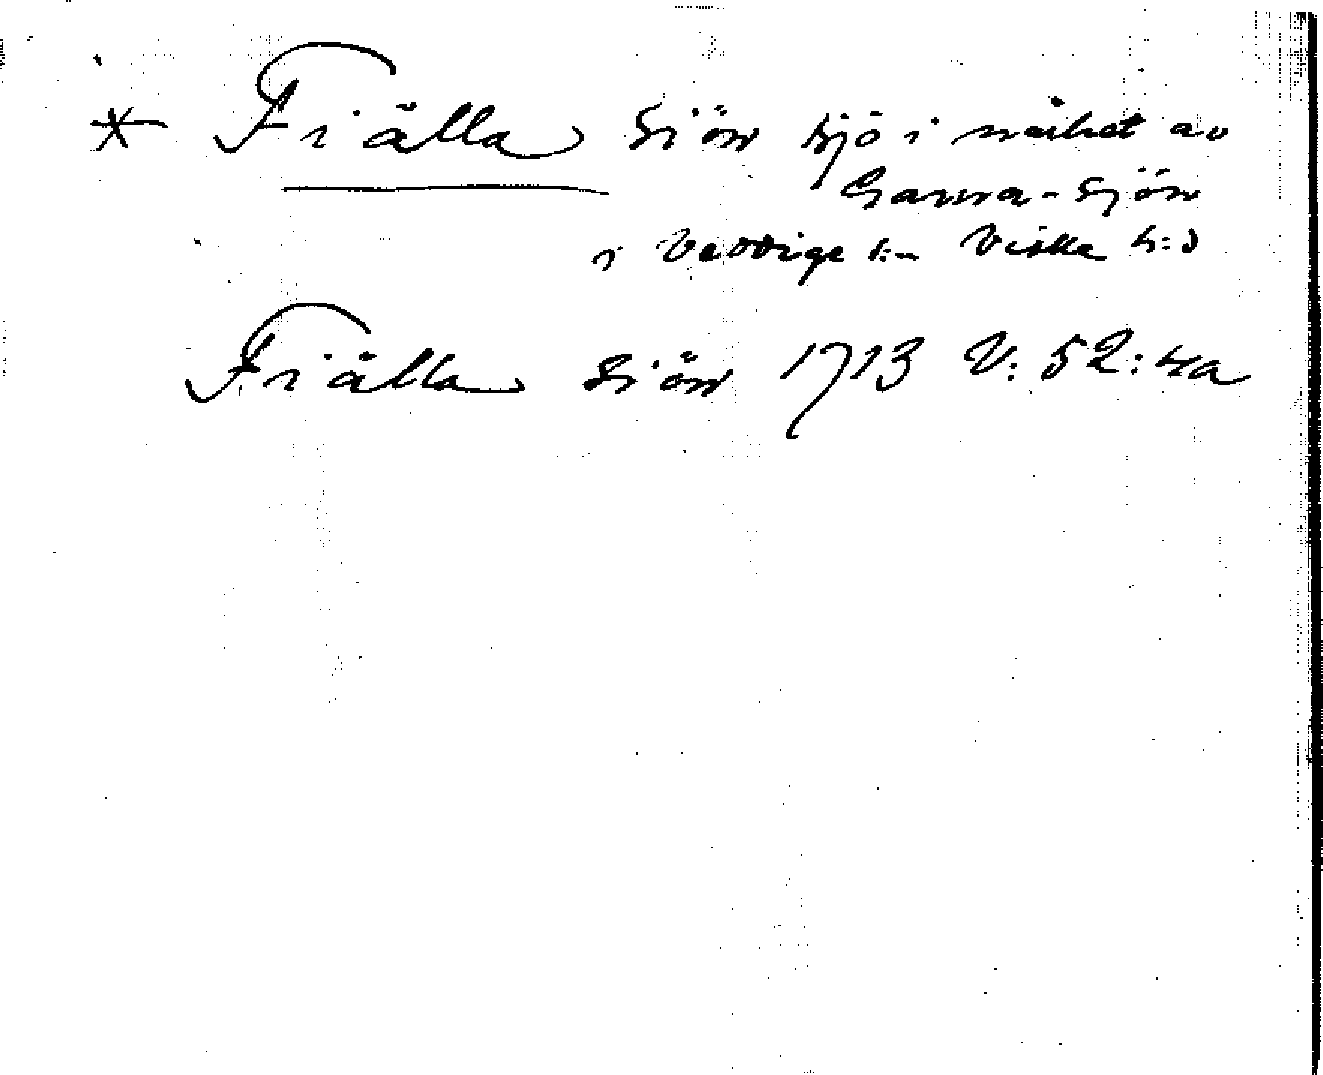 * Fiälla Siön sjö i närhet av
Sanna-Sjön
i Veddige sn Viske h:d
Fiälla Siön 1713 V: 52:4a